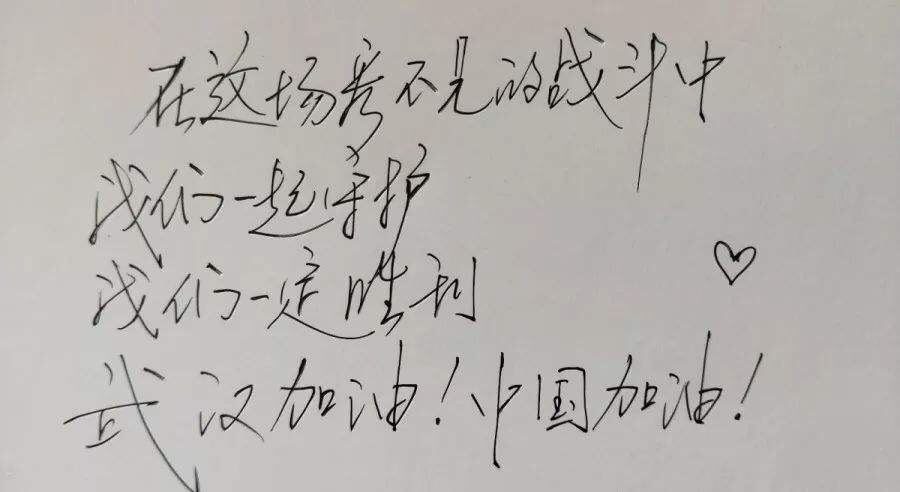 在这场看不见的战斗中
我们一起守护
我们一定胜利
武汉加油！中国加油！